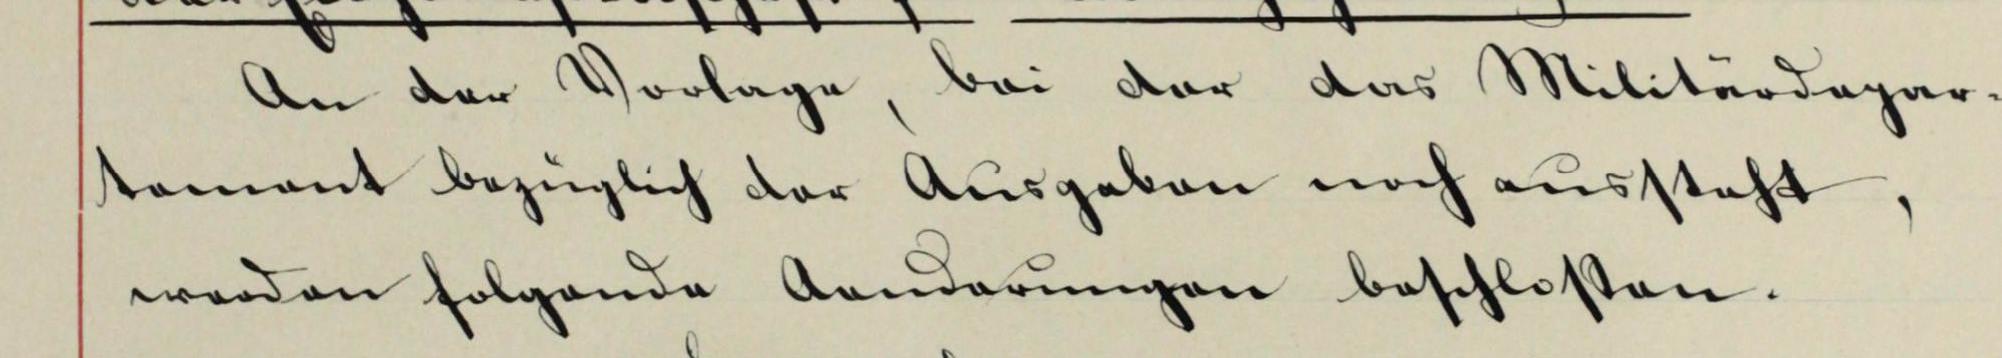 An der Vorlage, bei der das Militärdepar-
tement bezüglich der Ausgaben noch aussteht,
werden folgende Aenderungen beschlossen.